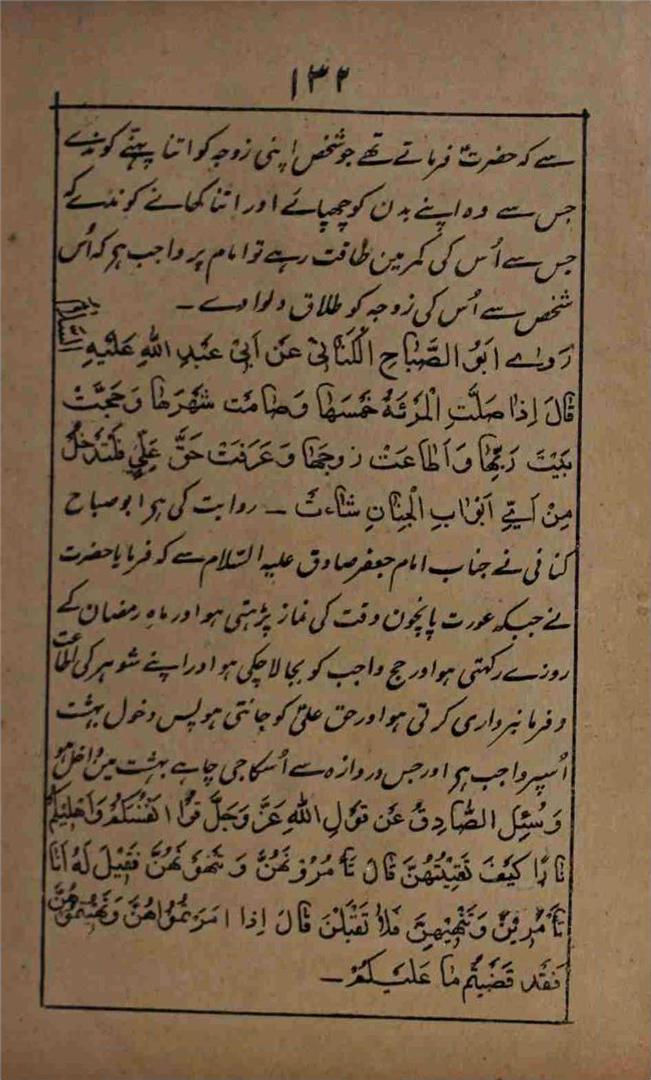 ۱۳۲
سے کہ حضرتؑ فرماتے تھے جو شخص اپنی زوجہ کو اتنا پہننے کو نہ دے
جس سے وہ اپنے بدن کو چھپائے اور اتنا کھانے کو نہ دے کہ
جس سے اُس کی کمر مین طاقت رہے تو امام پر واجب ہی کہ اُس
شخص سے اُس کی زوجہ کو طلاق دلوادے ۔
رَوىٰ اَبُو الصَّبَاحِ الْكَنَانِىْ عَنْ اَبِىْ عَبْدِ اللهِ عَلَيْهِ
قَالَ اِذَا صَلَّتِ الْمَرْئَةُ خَمْسَهَا وَصَامَتْ شَهْرَهَا وَحَجَّتْ
بَيْتَ رَبِّهَا وَاَطَاعَتْ زَوْجَهَا وَعَرَفَتْ حَقَّ عَلِيٍّ فَلْتَدْخُلْ
مِنْ اَيِّ اَبْوَابِ الْجِنَانِ شَاءَتْ ۔ روایت کی ہی ابو صباح
کنانی نے جناب امام جعفر صادق علیہ السّلام سے کہ فرمایا حضرت
نے جبکہ عورت پانچون وقت کی نماز پڑہتی ہو اور ماہِ رمضان کے
روزے رکھتی ہو اور حج واجب کو بجا لا چکی ہو اور اپنے شوہر کی اطاعت
و فرمانبرداری کرتی ہو اور حق علیؑ کو جانتی ہو پس دخول بہشت
اُسپر واجب ہی اور جس دروازہ سے اُسکا جی چاہے بہشت مین داخل ہو
وَسُئِلَ الصَّادِقُ عَنْ قَوْلِ اللهِ عَزَّ وَجَلَّ قُوْا اَنْفُسَكُمْ وَاَهْلِيْكُمْ
نَارًا كَيْفَ نَقِيْهُنَّ قَالَ تَأْمُرُوْنَهُنَّ وَتَنْهَوْنَهُنَّ فَقِيْلَ لَهُ اِنَّا
نَأْمُرُهُنَّ وَنَنْهٰيهُنَّ فَلَا تَقْبَلْنَ قَالَ اِذَا اَمَرْتُمُوْاهُنَّ وَنَهَيْتُمُوْهُنَّ
فَقَدْ قَضَيْتُمْ مَا عَلَيْكُمْ ۔